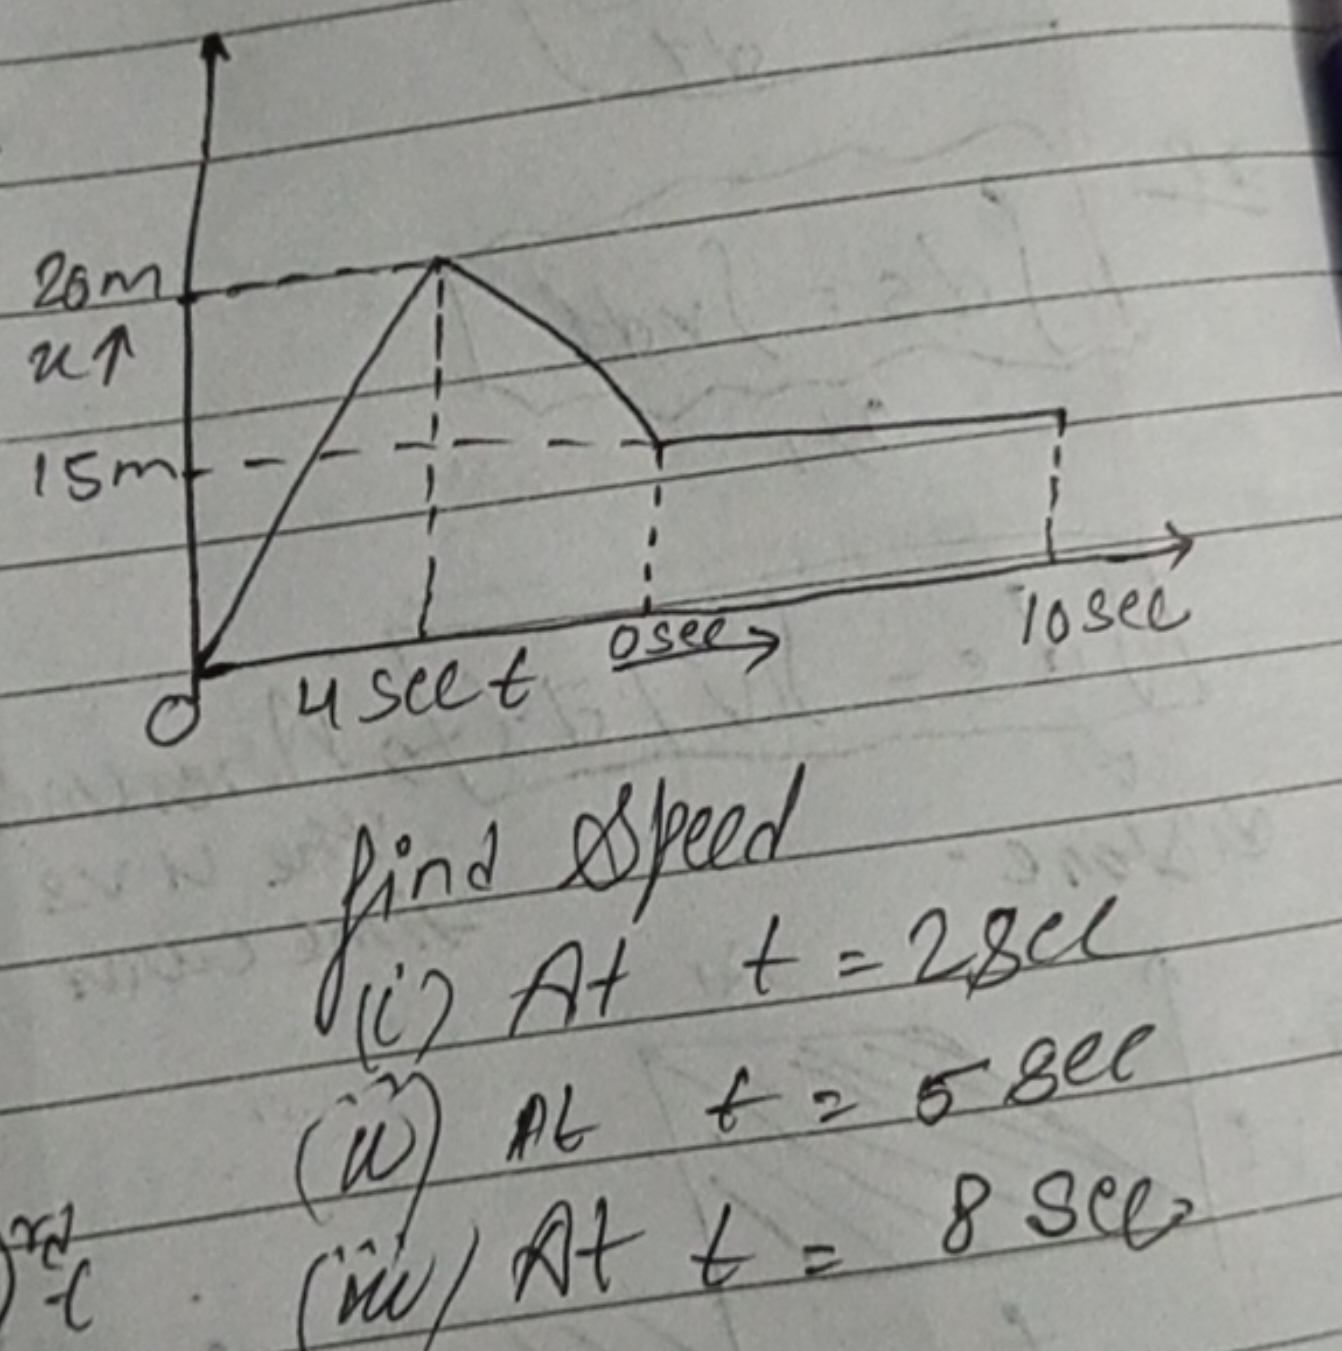 20m
x↑
15m
0
4 sec t
0sec →
10 sec
find Speed
(i) At t = 2sec
(ii) At t = 5 sec
(iii) At t = 8 sec